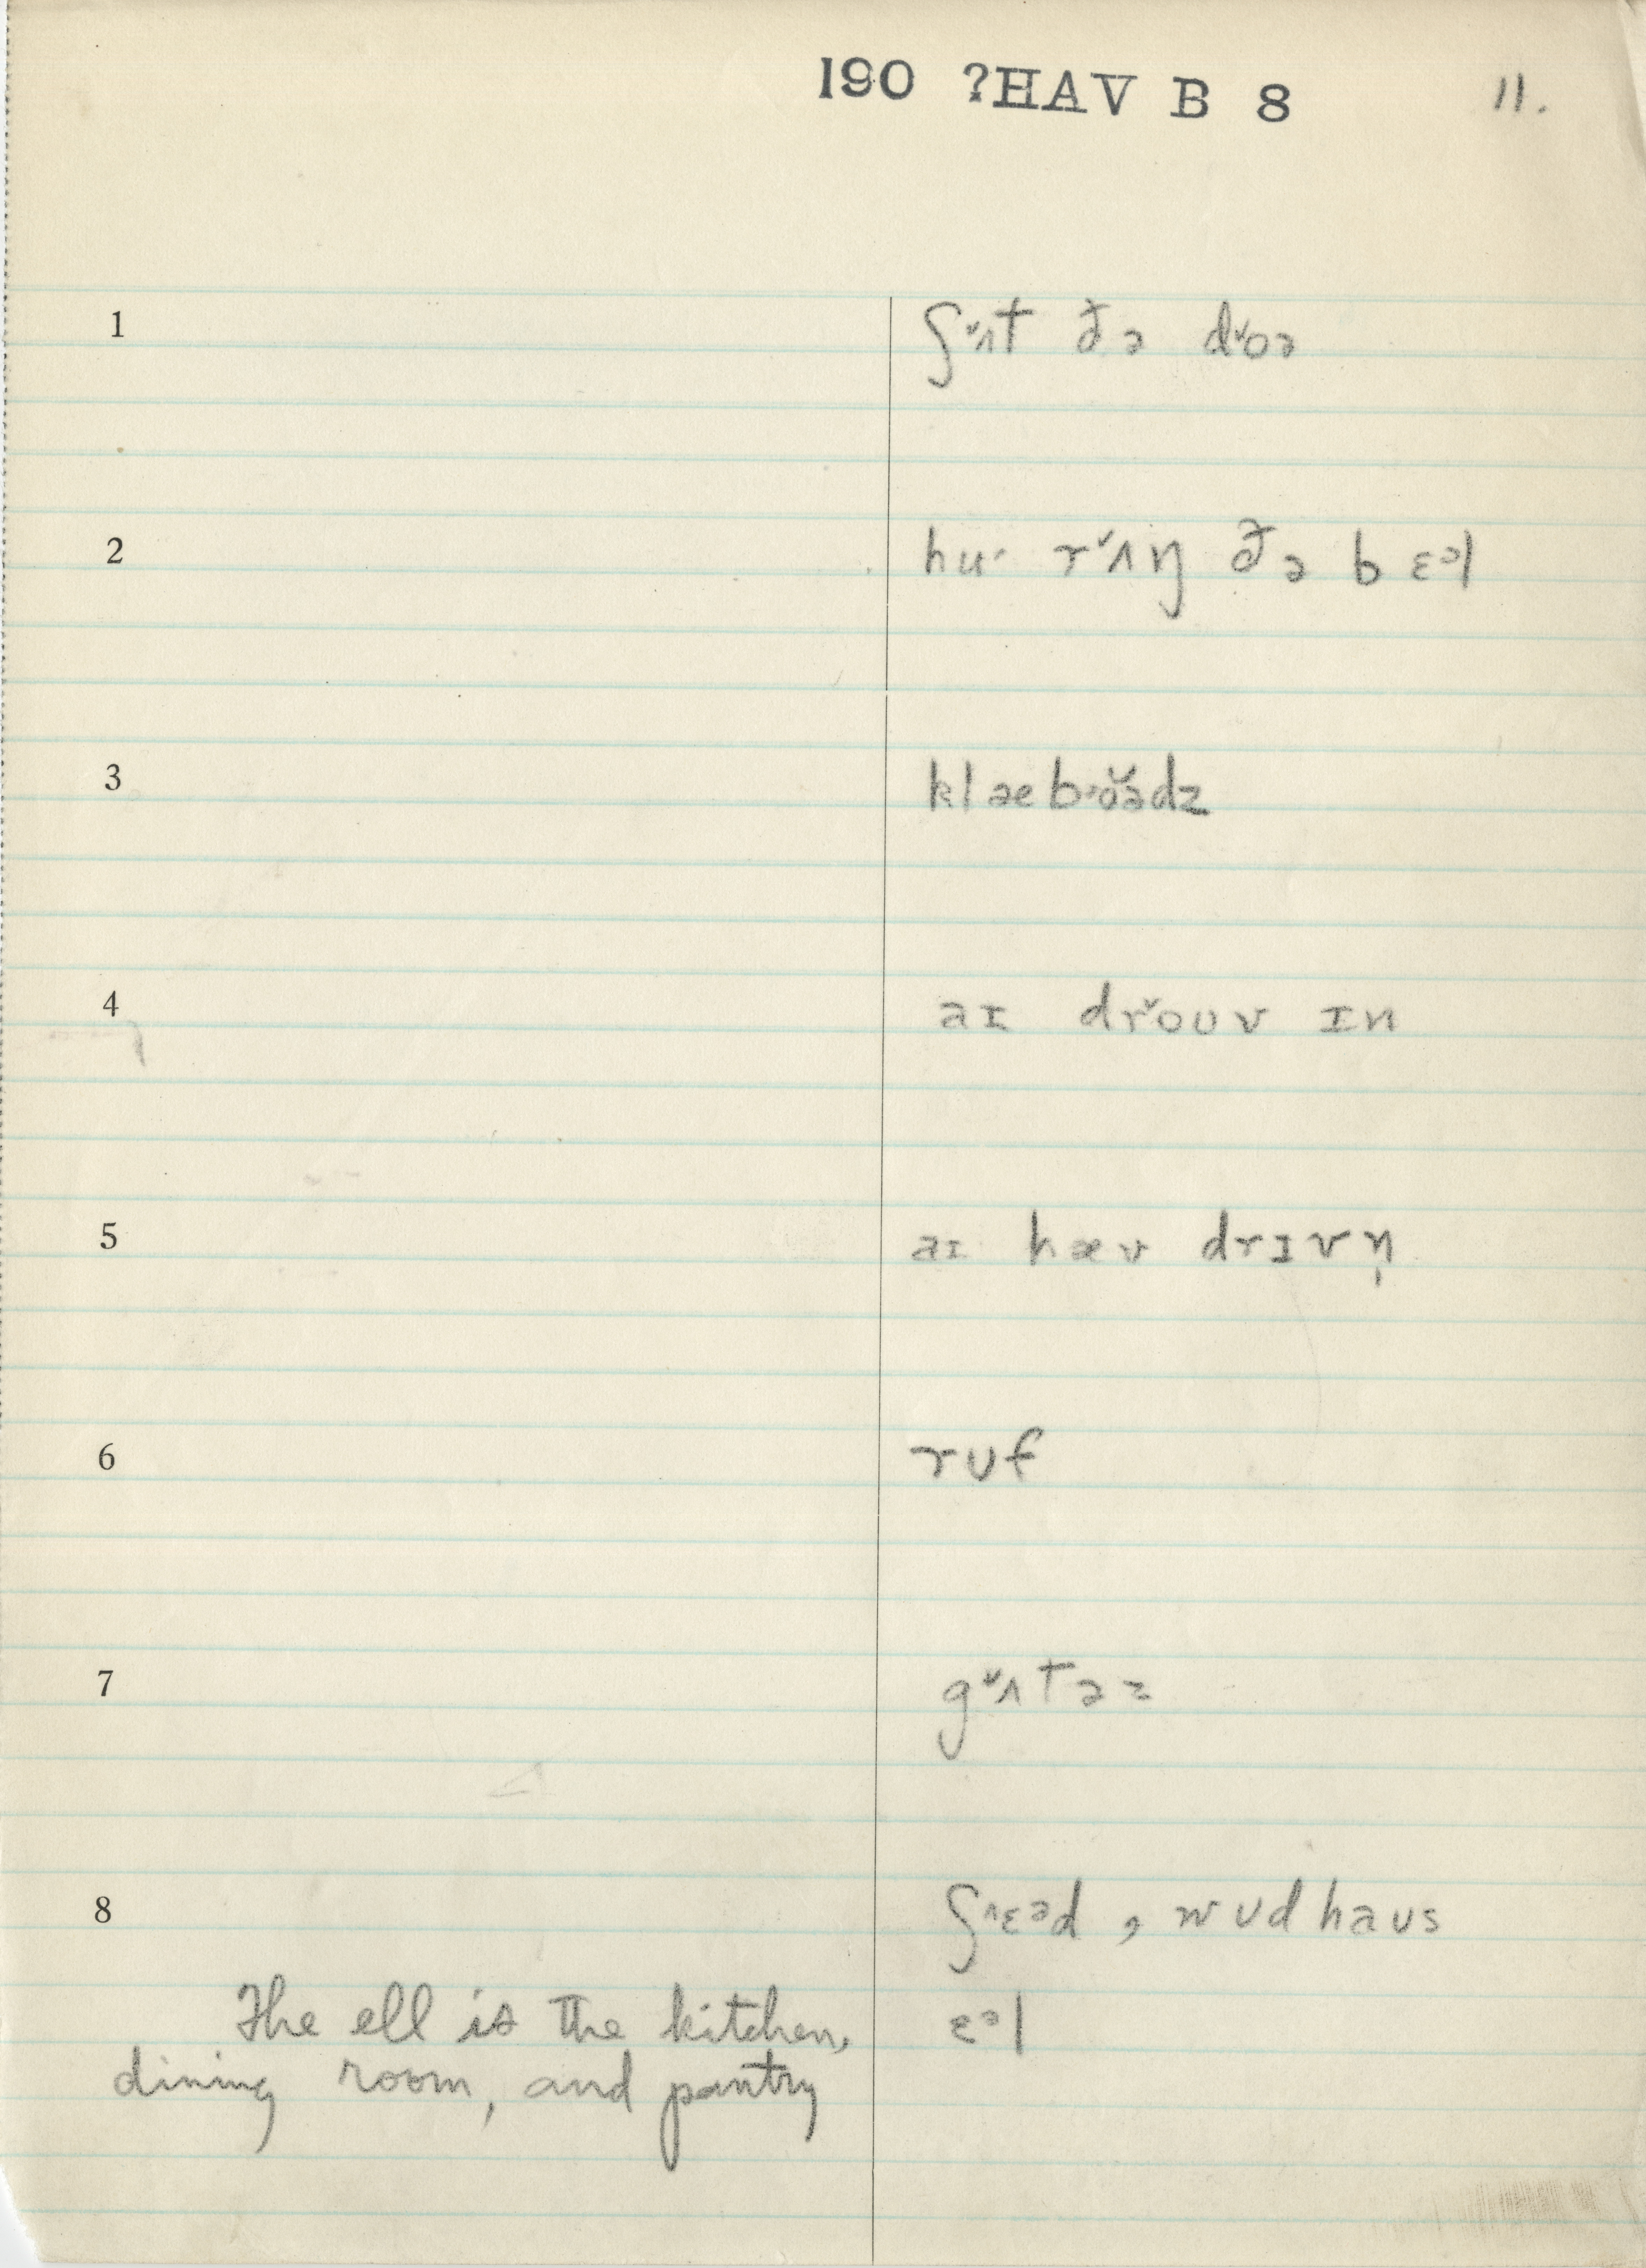 190 ?HAV B 8 11.
1 ʃ˅ʌt ðə d˅oə
2 hu· r˅ʌŋ ðə bɛᵊl
3 klæb·ŏə̆dz
4 aɪ dr˅oʊv ɪn
5 aɪ hæv drɪvn̩
6 rʊf
7 g˅ʌtəz
8 ʃ^ɛᵊd , wʊdhaʊs
The ell is the kitchen, ɛᵊl
dining room, and pantry